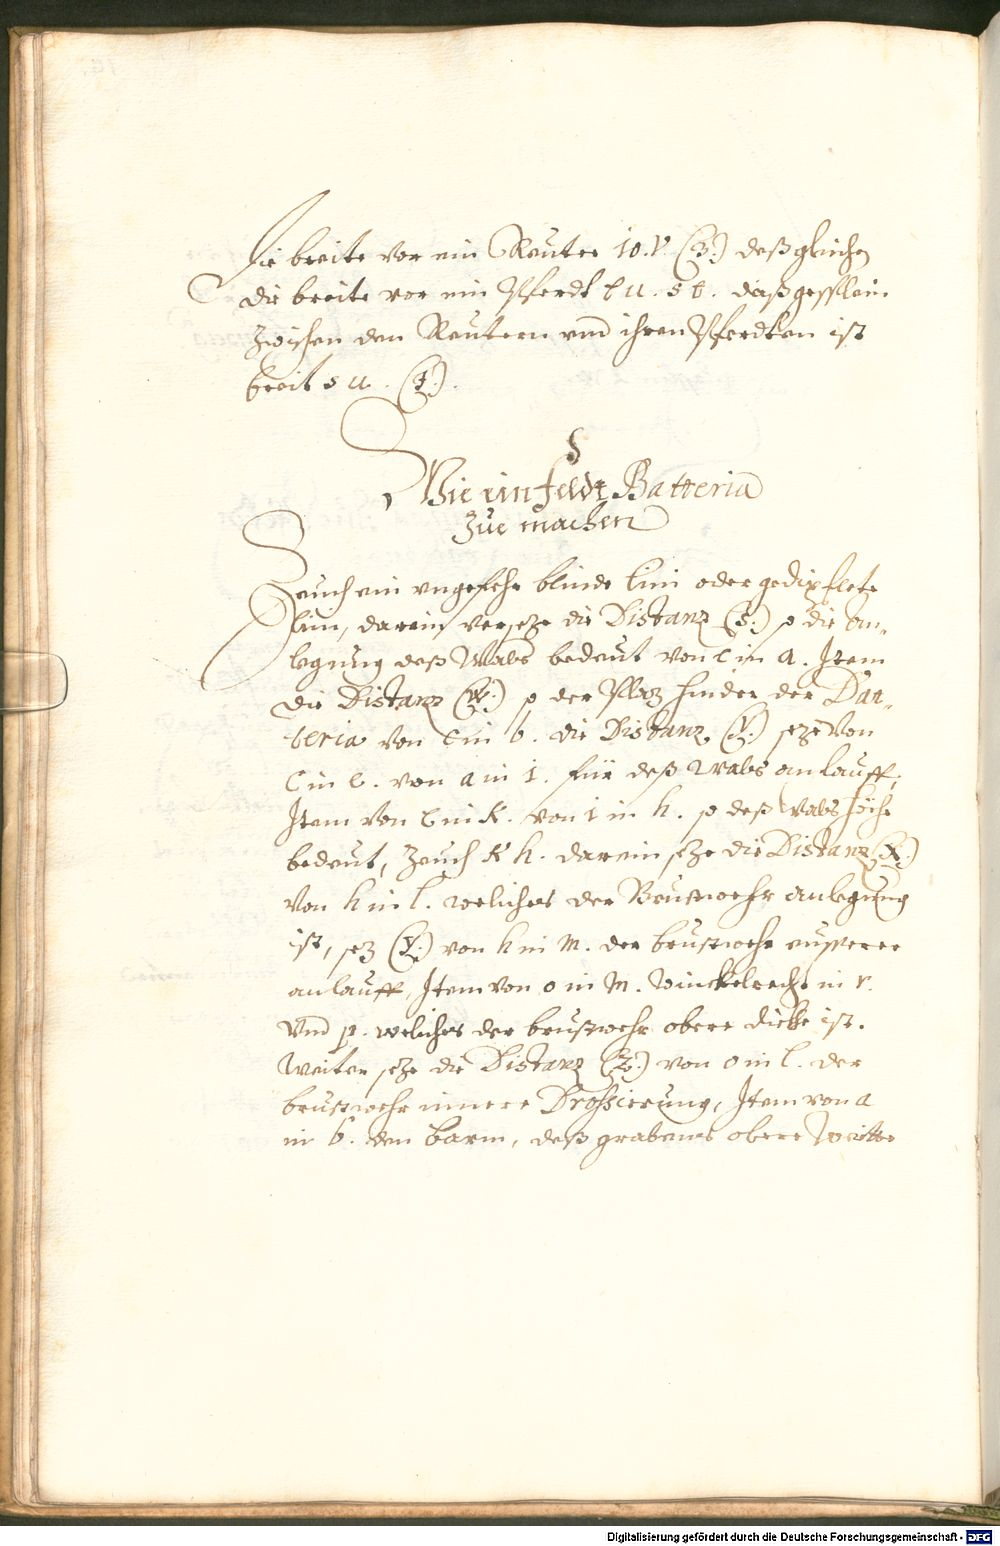 Die breite vor ein Reuter 10. V. (3.) deß gleichen
die breite vor ein Pferdt t u. s t. daß gesslein
zwischen den Reutern vnd ihren Pferdten ist
breit s u. (I.).
§
Wie ein feldt Batteria
zue machen
Zeuch ein vngefehr blinde lini oder gedipflete
lini, darein verseze die Distanz (S.) so die an-
legung deß Wals bedeut von c in a. Item
die Distanz (W.) so der Plaz hinder der Bat-
teria von c in b. die Distanz (V.) seze von
c in e. von a in i. für deß Wals anlauff,
Item von e in K. von i in h. so deß Wals höche
bedeut, Zeuch K h. darein seze die Distanz (X.)
von h in l. welches der Brustwehr anlegung
ist, sez (Y.) von h in m. der brustwehr eusserer
anlauff, Item von o in m. Winckelrecht in r.
vnd p. welches der brustwehr obere dicke ist.
Weiter seze die Distanz (Z.) von o in l. der
brustwehr innere Drossierung, Item von a
in b. den barm, deß grabens obere Weitte
Digitalisierung gefördert durch die Deutsche Forschungsgemeinschaft - DFG